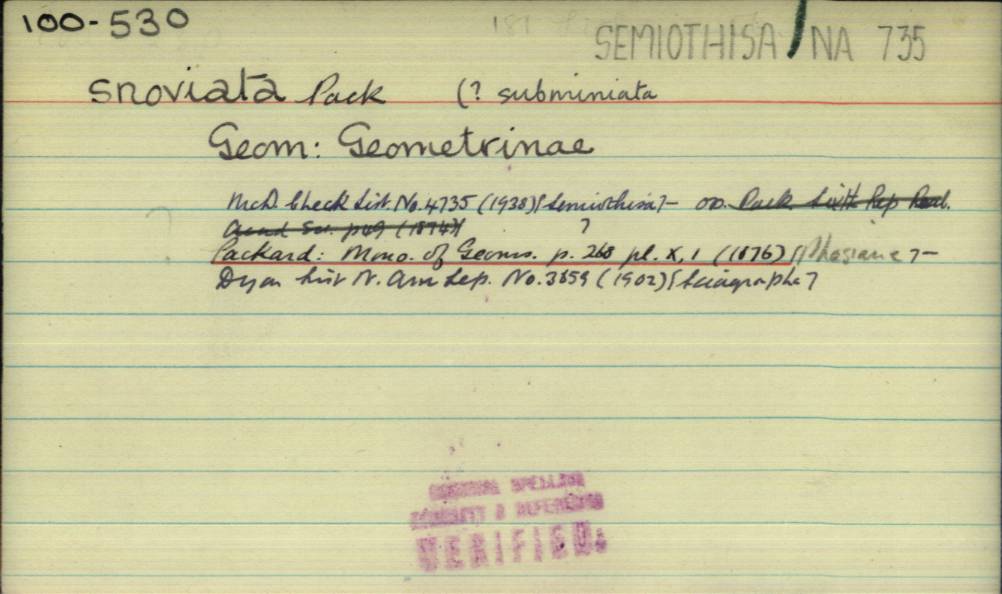 100-530
SEMIOTHISA / NA 735
snoviata Pack (? subminiata
Geom: Geometrinae
McD. Check List No. 4735 (1938) [Semiothisa] - op. Pack Sixth Rep Peab.
Acad Sci. p49 (1874) ?
Packard: Mono. of Geoms. p. 268 pl. X, 1 (1876) [Phasiane] -
Dyar List N. Am Lep. No. 3659 (1902) [Sciagrapha]
ORIGINAL SPELLING
GENOTYPE & REFERENCE
VERIFIED.